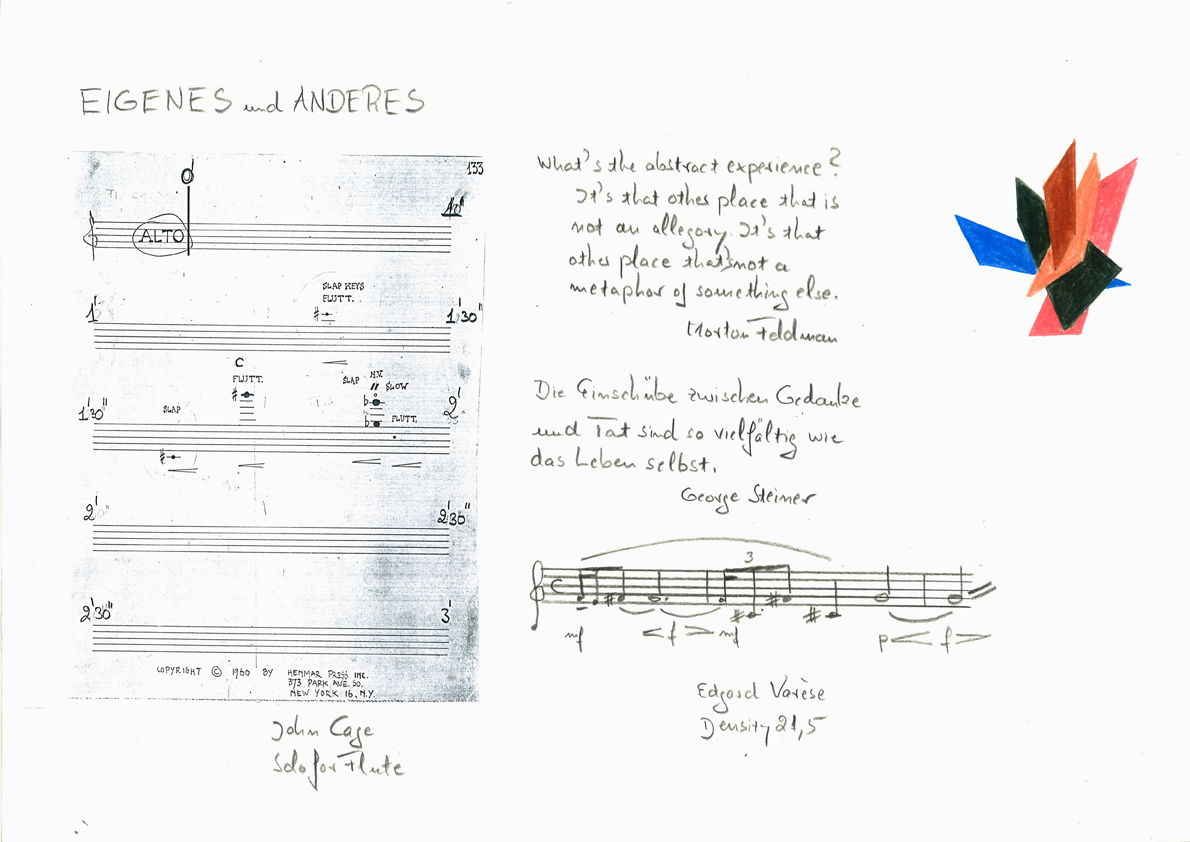 EIGENES und ANDERES
133
ALTO
1'
SLAP KEYS
FLUTT.
1'30"
C
FLUTT.
SLAP
N.V.
SLOW
1'30"
SLAP
FLUTT.
2'
2'
2'30"
2'30"
3'
COPYRIGHT © 1960 BY HENMAR PRESS INC.
373 PARK AVE. SO.
NEW YORK 16, N.Y.
John Cage
Solo for Flute
What's the abstract experience?
It's that other place that is
not an allegory. It's that
other place that's not a
metaphor of something else.
Morton Feldman
Die Einschübe zwischen Gedanke
und Tat sind so vielfältig wie
das Leben selbst.
George Steiner
3
mf f mf p f
Edgard Varèse
Density 21,5